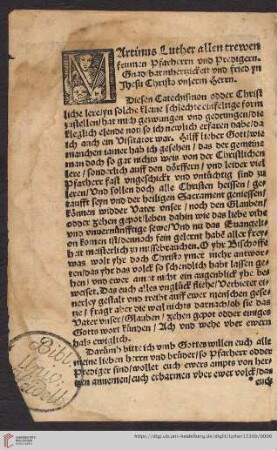 Martinus Luther allen trewen
frumen Pfarherrn vnd Predigern.
Gnad barmhertzickeit vnd fried yn
Jhesu Christo vnserm Herrn.
Diesen Catechismon odder Christ
liche lere yn solche kleine schlechte einfeltige form
zustellen hat mich gezwungen vnd gedrungen die
kleglich elende not so ich newlich erfaren habe da
ich auch ein Visitator war. Hilff lieber Gott wie
manchen iamer hab ich gesehen das der gemeine
man doch so gar nichts weis von der Christlichen
lere sonderlich auff den dörffern vnd leider viel
Pfarherr fast vngeschickt vnd vntüchtig sind zu
leren Vnd sollen doch alle Christen heissen ge
taufft seyn vnd der heiligen Sacrament geniessen
können widder Vater vnser noch den Glauben
odder zehen gepot leben dahin wie das liebe vihe
vnd vnuernünfftige sewe Vnd nu das Euangeli
on komen ist dennoch fein gelernt haben aller frey
heit meisterlich zu misbrauchen. O yhr Bischoffe
was wolt yhr doch Christo ymer mehr antwort
ten das yhr das volck so schendlich habt lassen ge
hen vnd ewer ampt nicht ein augenblick yhe be
weiset Das euch alles vnglück fliehe Verbietet ei
nerley gestalt vnd treibt auff ewer menschen gese
tze fragt aber die weil nichts darnach ob sie das
Vater vnser Glauben zehen gepot odder einiges
Gotts wort künden Ach vnd wehe vber ewern
hals ewiglich.
Darumb bitte ich vmb Gottes willen euch alle
meine lieben herrn vnd brüder so Pfarherr odder
Prediger sind wollet euch ewers ampts von hertz
en annemen euch erbarmen vber ewer volck das
euch